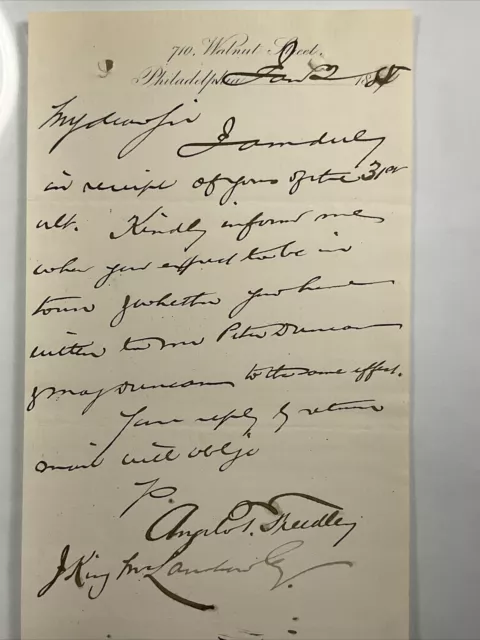 710. Walnut Street.
Philadelphia Jan 2 188
My dear Sir
I am duly
in receipt of yours of the 31st
ult. Kindly inform me
when you expect to be in
town & whether you have
written to Mr Peter Duncan
& Maj Duncan to the same effect.
Your reply by return
mail will oblige
Angelo T. Freedley
J King